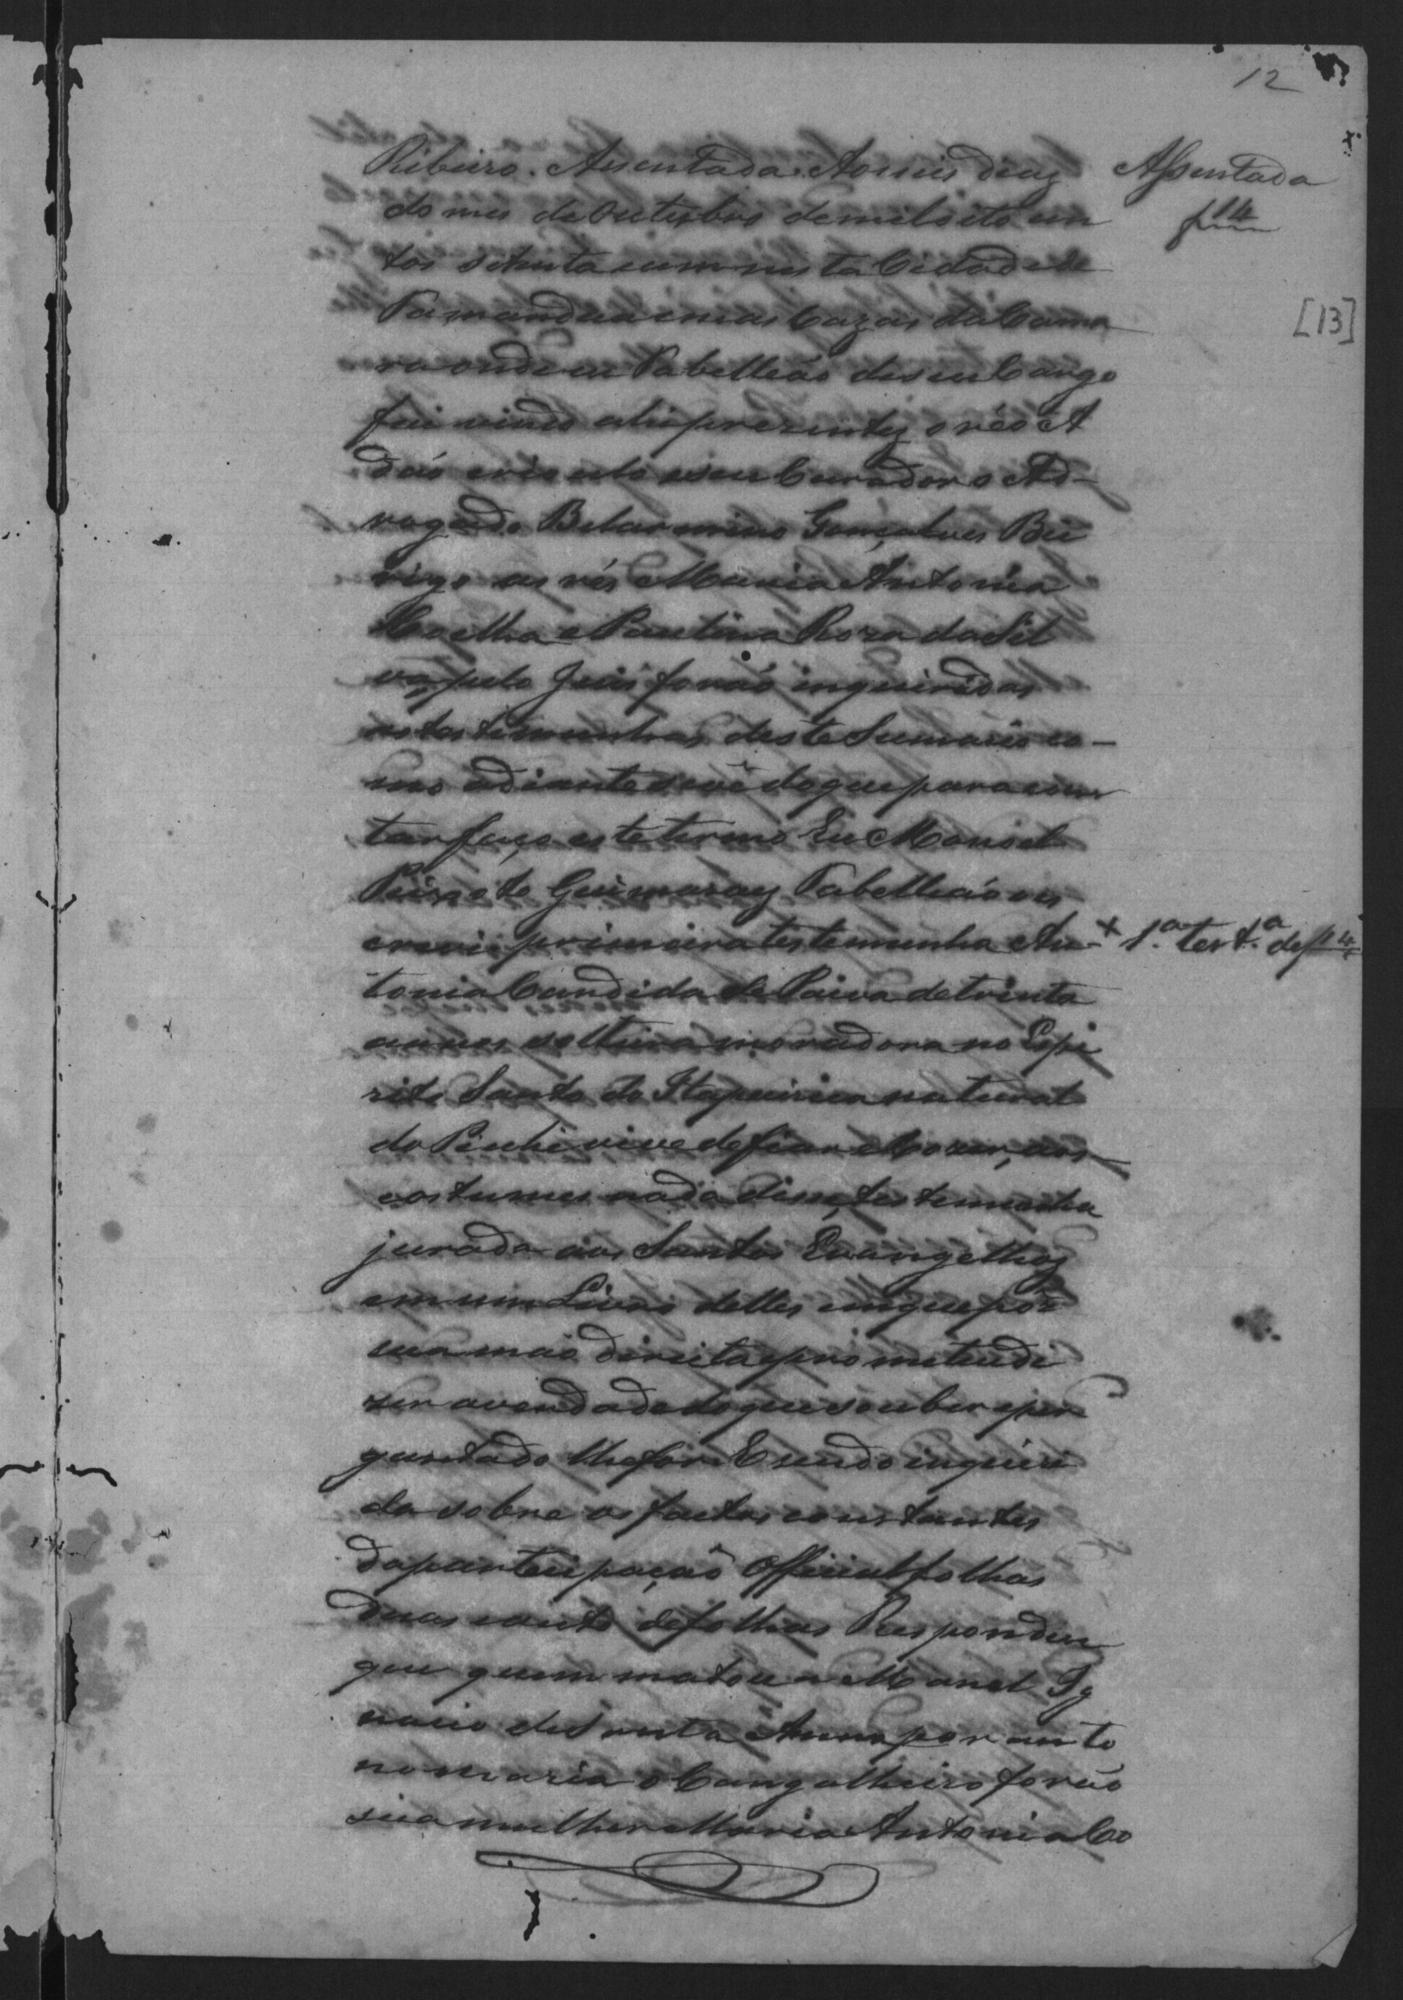 12
Ribeiro. Assentada. Aos seis dias
do mes de Outubro de mil oito cen
tos setenta e um nesta Cidade de
Tamandua em as Cazas da Cama
ra onde eu Tabelleão de seu Cargo
fui vindo ahi prezentes o réo A
dão crioulo e seu Curador o Ad-
vogado Belarmino Gonçalves
as rés Maria Antonia
Coelha e Paulina Roza da Sil
va, pelo Juis forão inqueiridas
as testemunhas deste Sumario co-
mo adiante se vê do que para cons
tar faço este termo Eu Manoel
Pinto Guimaraes Tabelleão es
crevi primeira testemunha An-
tonia Candida de Paiva de trinta
annos solteira moradora no Espi
rito Santo do Itapecirica natural
do Piuhi vive de fiar e Cozer, aos
costumes nada disse, testemunha
jurada aos Santos Evangelhos
em um Livro delles em que pôz
sua mão direita e prometeu di
zer a verdade do que souber e per
guntado lhe for. E sendo inquiri
da sobre os factos constantes
da participação Official folhas
duas Respondeu
que quem matou a Manoel Ig
nacio de Santa Anna por anto
nomazia o Cangalheiro forão
sua mulher Maria Antonia Co
Assentada
f 14
[13]
+ 1.ª test.ª de f 14